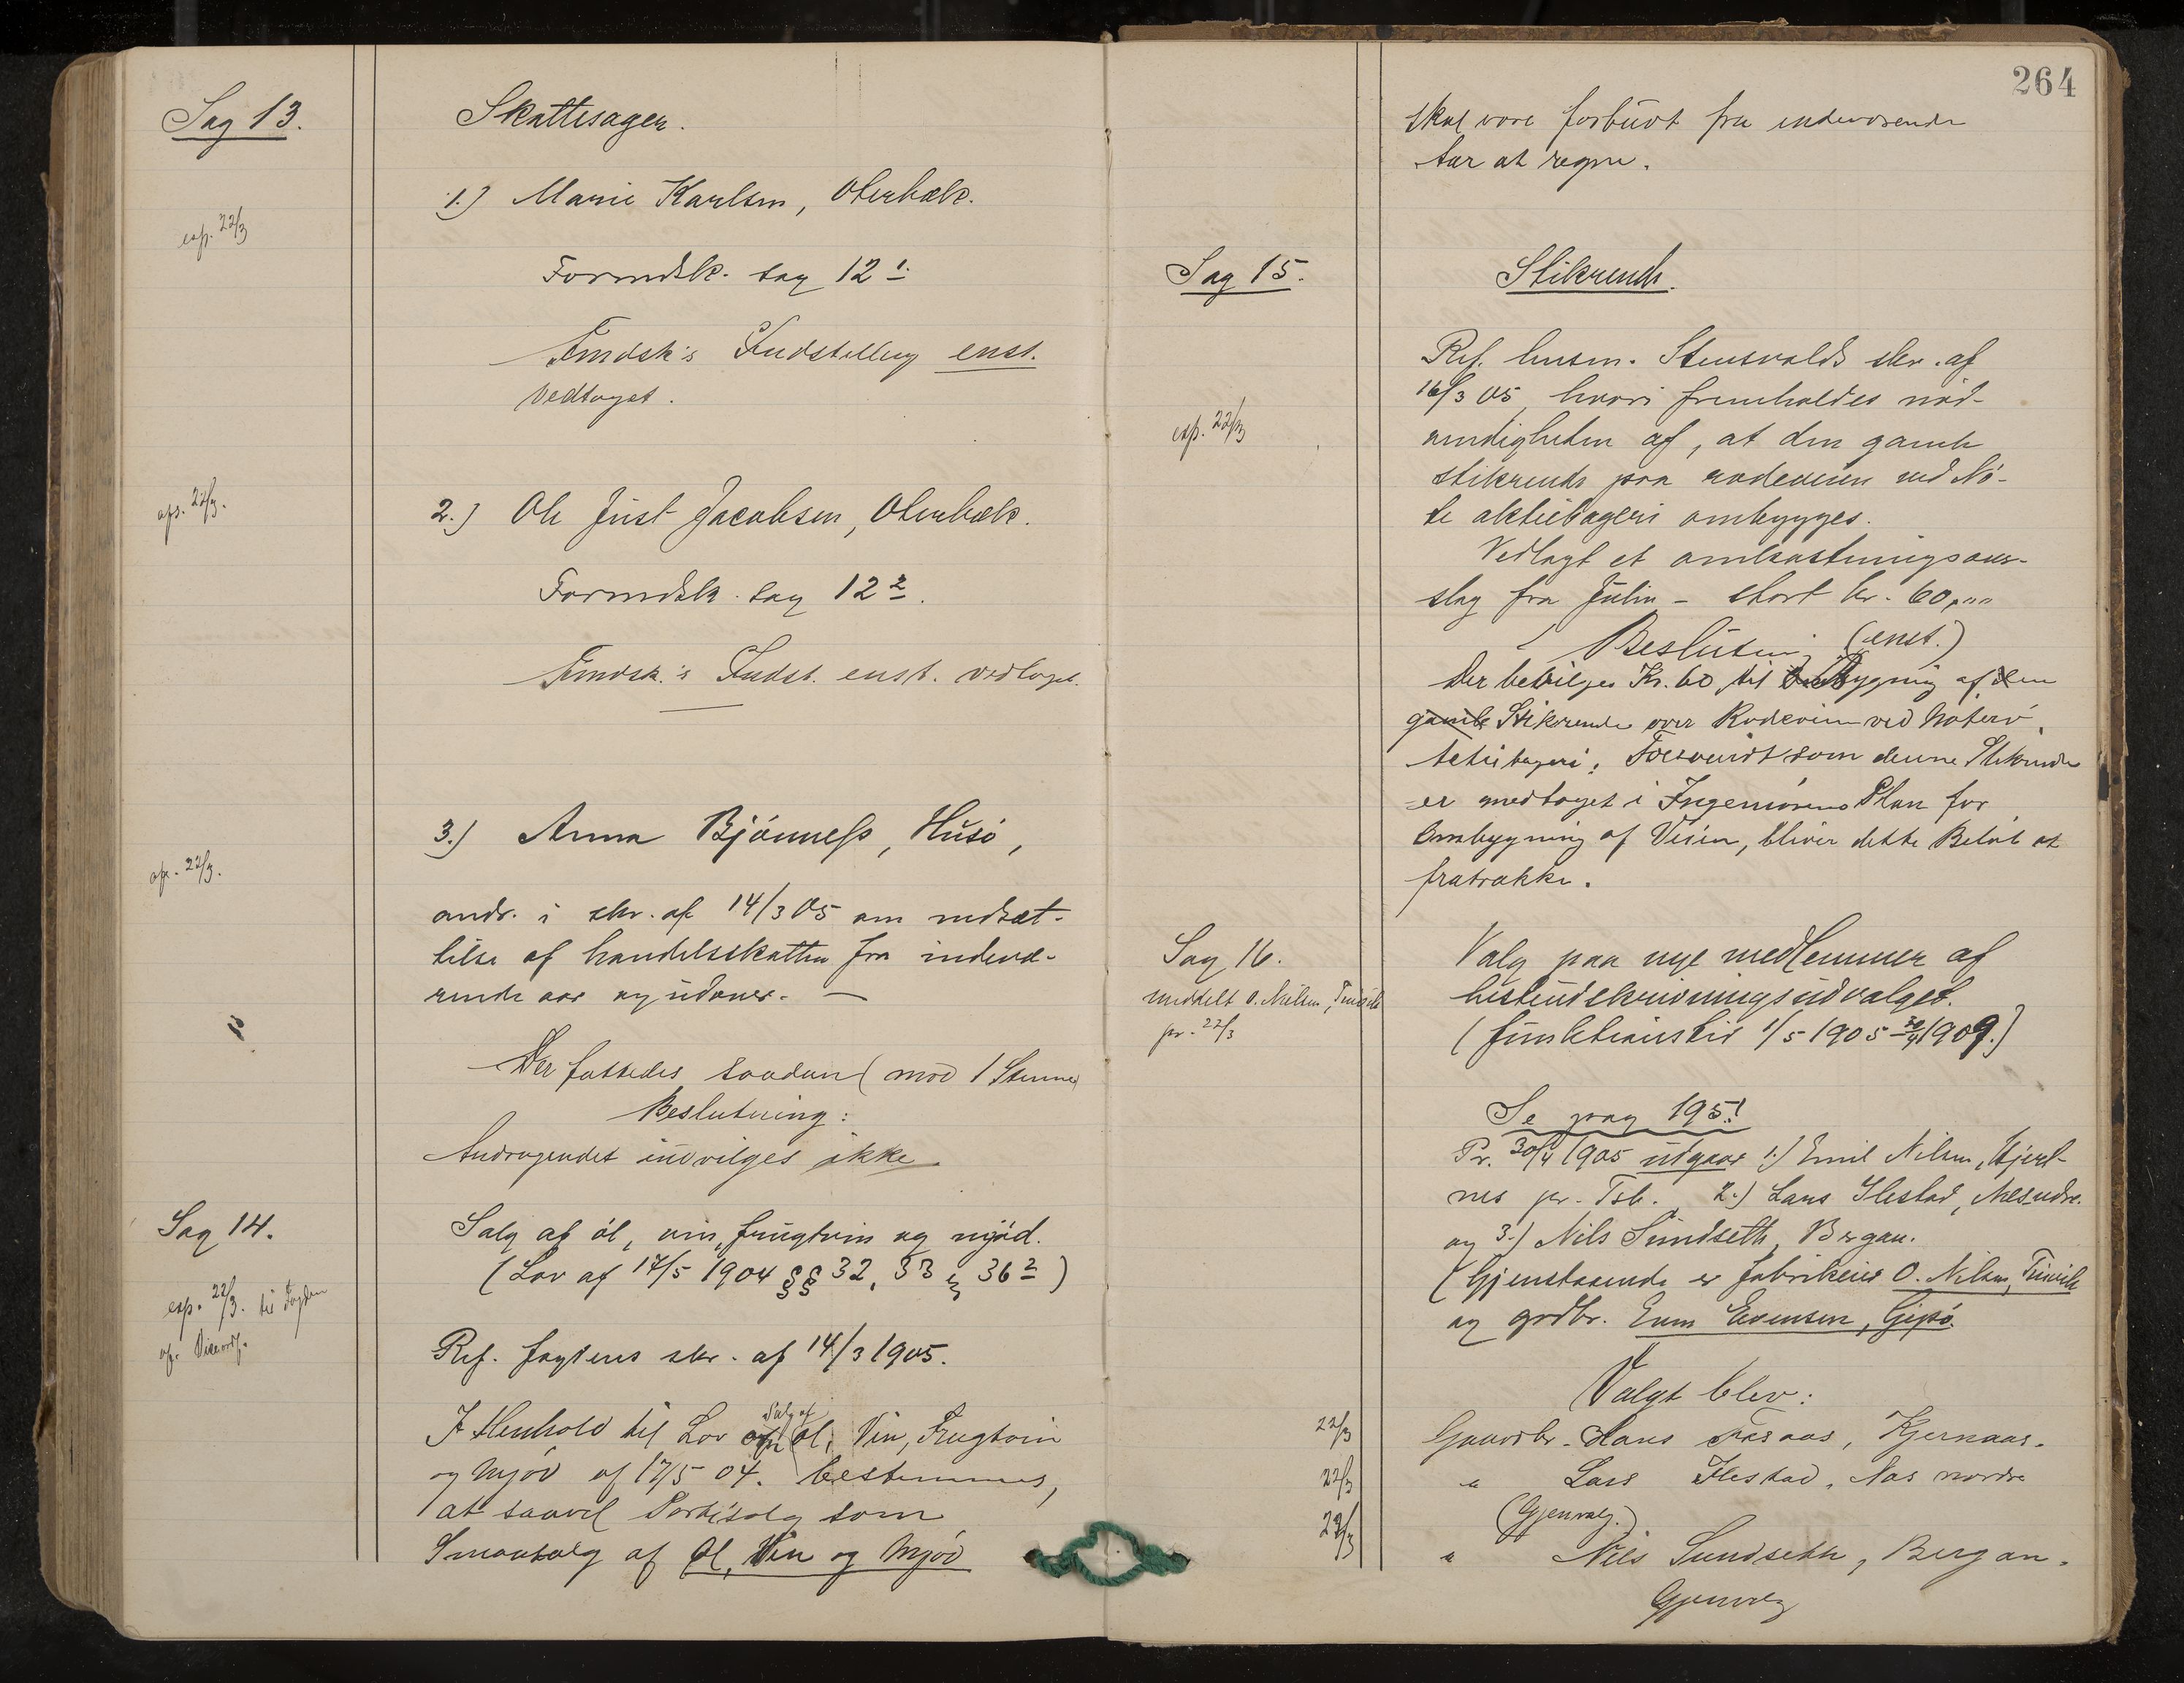 Sag 13.
Skattesager.
1.) Marie Karlsen, Oterbæk.
exp. 22/3
Formdsk. sag 12 1.
Fmdsk's Indstilling enst.
vedtaget.
exp. 22/3.
2.) Ole Just Jacobsen, Oterbæk.
Formdsk. sag 12 2.
Fmdsk.'s Indst. enst. vedtaget.
3.) Anna Bjönness, Husö,
exp. 22/3.
andr. i skr. af 14/3 05 om nedsæt-
telse af handelsskatten fra indevæ-
rende aar og udover. —
Der fattedes saadan (mod 1 Stemme)
Beslutning:
Andragendet indvilges ikke
Sag 14.
Salg af öl, vin, frugtvin og mjöd.
(Lov af 17/5 1904 §§ 32, 33 & 36 2)
exp. 22/3. til Fogden
Ref. fogdens skr. af 14/3 1905.
I Henhold til Lov om Salg af Öl, Vin, Frugtvin
og Mjöd af 17/5 04. bestemmes,
at saavel Partisalg som
Smaasalg af Öl, Vin og Mjöd
264
skal være forbudt fra indeværende
aar at regne.
Sag 15.
Stikrende.
Ref. lensm. Stensvolds skr. af
16/3 05, hvori fremholdes nöd-
vendigheden af, at den gamle
exp. 22/3
stikrende paa rodeveien ved Nö-
te aktiebageri ombygges.
Vedlagt et omkostningsover-
slag fra Julin – stort kr. 60,""
Beslutning (enst.)
Der bevilges Kr. 60 til Bygning af en
gamle Stikrende over Rodeveien ved Nöterö
Actiebageri; Forsaavidt som denne Stikrende
er medtaget i Ingeniörens Plan for
Ombygning af Veien, bliver dette Belöb at
fratrække.
Sag 16.
Valg paa nye medlemmer af
hesteudskrivningsudvalget.
meddelt O. Nilsen,
pr. 22/3
(funktionstid 1/5 1905 – 30/4 1909.)
Se pag 195!
Pr. 30/4 1905 udgaar 1.) Emil Nilsen, Hjert-
nes pr. Tsb. 2.) Lars Ilestad, Næs ndre.
og 3.) Nils Sundseth, Bergan.
(Gjenstaaende er fabrikeier O. Nilsen,
og grdbr. Enm Evensen, Gipö.
Valgt blev:
22/3 Gaardbr. Hans Aasaas, Kjernaas.
22/3 " Lars Ilestad, Næs nordre
(Gjenvalg.)
22/3 " Nils Sundseth, Bergan.
Gjenvalg